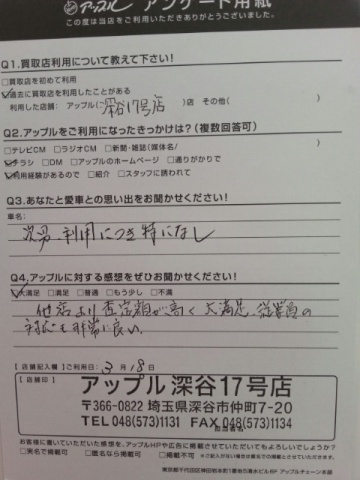 アップル アンケート用紙
この度は当店をご利用いただきありがとうございました。
Q1.買取店利用について教えて下さい!
□買取店を初めて利用
☑過去に買取店を利用したことがある
利用した店舗: アップル(深谷17号店)店 その他( )
Q2.アップルをご利用になったきっかけは?(複数回答可)
□テレビCM □ラジオCM □新聞・雑誌(媒体名/ )
☑チラシ □DM □アップルのホームページ □通りがかりで
☑利用経験があるので □紹介 □スタッフに誘われて
Q3.あなたと愛車との思い出をお聞かせください!
車名:
次男、利用につき特になし
Q4.アップルに対する感想をぜひお聞かせください!
☑大満足 □満足 □普通 □もう少し □不満
他店より査定額が高く大満足。従業員の
対応も非常に良い。
【店舗記入欄】ご利用日: 3月18日
【店舗印】
アップル深谷17号店
〒366-0822 埼玉県深谷市仲町7-20
TEL048(573)1131 FAX048(573)1134
お客様に書いていただいた感想を、アップルHPや広告に掲載させていただいてもよろしいでしょうか?
□実名で掲載可 □匿名なら掲載可 □掲載不可 ※ご記入がない場合は匿名での掲載とさせていただきます。